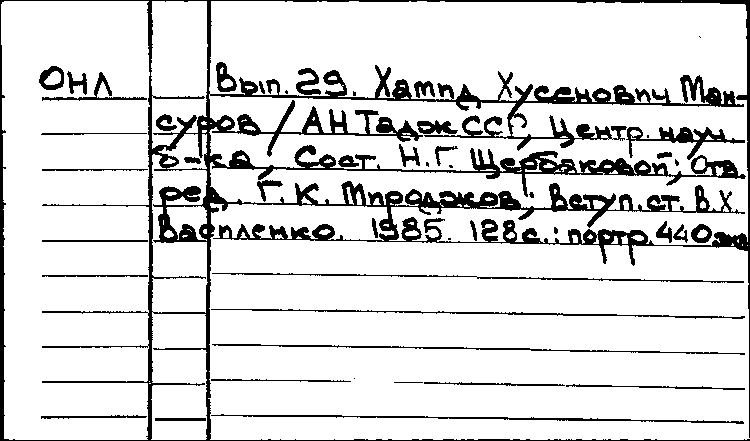 ОНЛ Вып. 29. Хамид Хусенович Ман-
суров / АН ТаджССР, Центр. науч.
б-ка; Сост. Н.Г. Щербаковой; Отв.
ред. Г.К. Мироджов; Вступ. ст. В.Х.
Василенко. 1985. 128с.: портр. 440экз